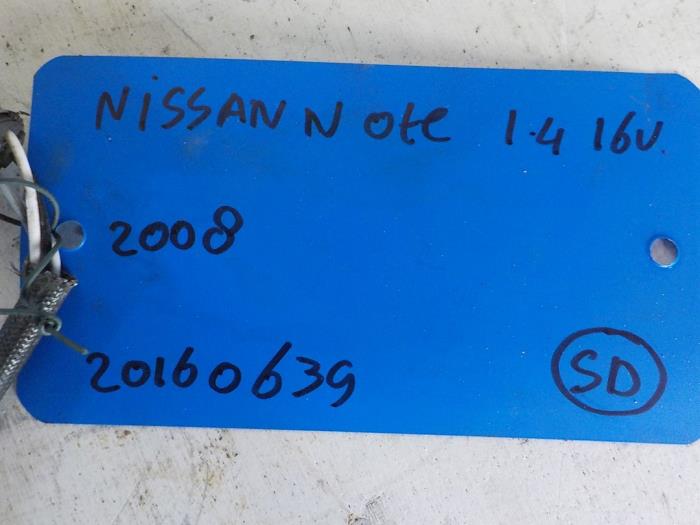 NiSSAN Note 1.4 16v.
2008
20160639
SD